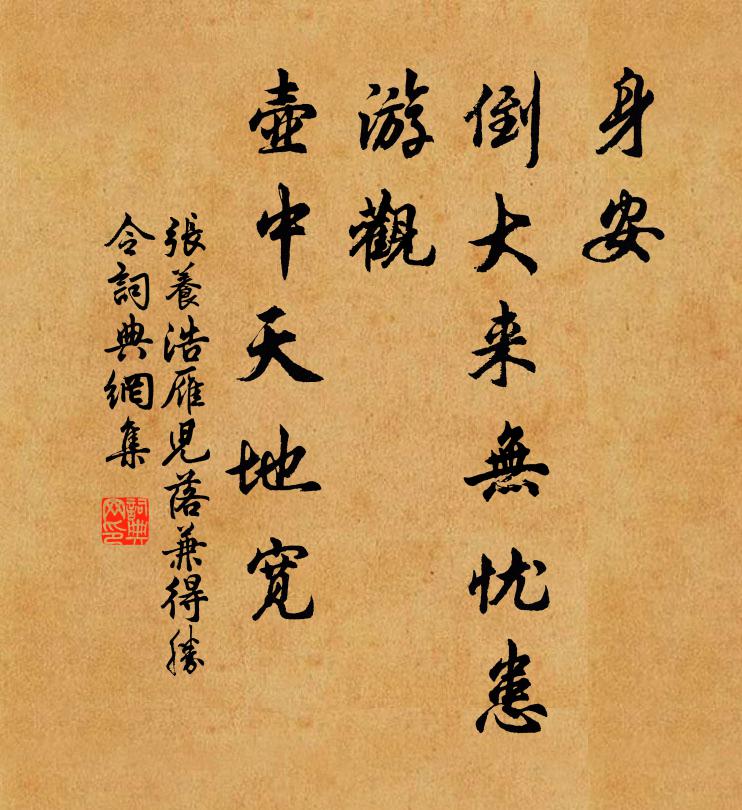 身安
倒大来無忧患
游觀
壺中天地寬
張養浩雁兒落兼得勝
令詞典網集
詞典
网印